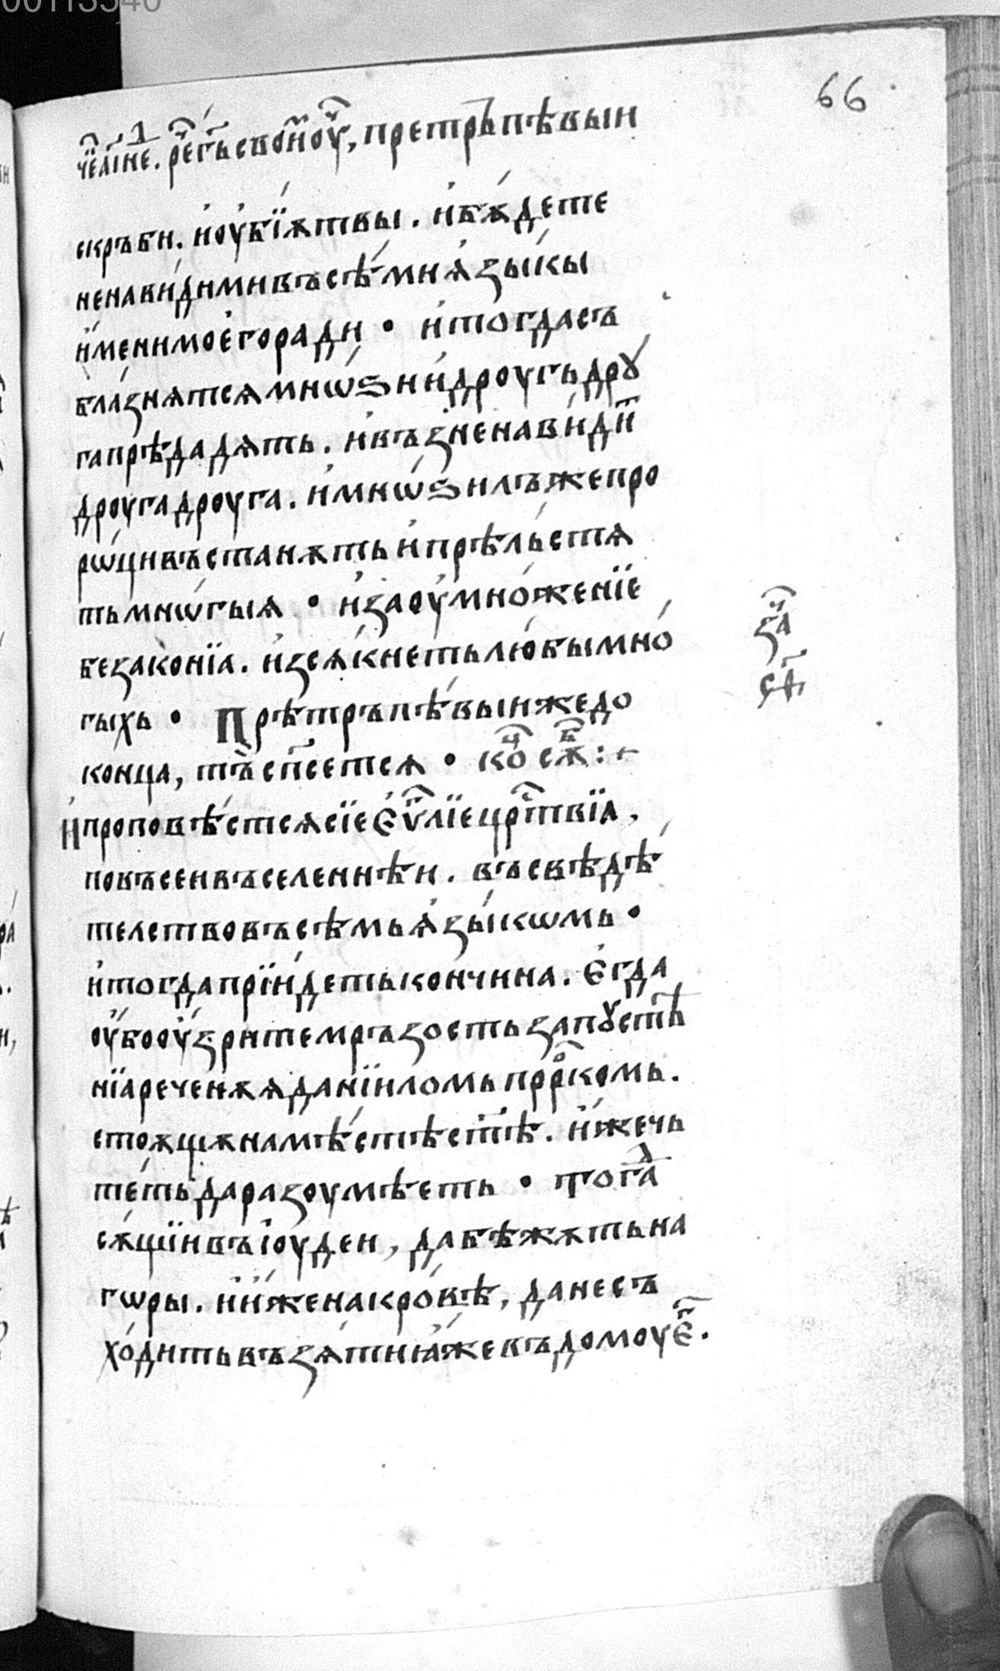 00113540
66
че҇л҇ не҇д. ре҇ г҇ь своиⷨ оу҇ч, претръпѣвыи
скръби. и҆оу҆бїѫтвы. и҆бѫ́дете
ненави́дими въсѣ́ми ѧ҆зы́кы
и҆мени мое҆го ради • и҆тогда съ
бла́знѧтсѧ мнѡ́ѕи и҆ дроугь дрꙋ́
га прѣдадѧть. и҆възненави́дѧⷮ
дроуга дроуга. и҆ мнѡ́ѕи лъжепро
рѡ́ци въстанѫть и҆ прѣльстѧ
ть мнѡ́гыѧ • и҆за оу҆мно́женїе
безаконїа. и҆зсѧ́кнеть любы мно́
гыхь • Прѣтръпѣ́выи же до
конца, тъ̀ сп҃сетсѧ • коⷰ҇ сѫⷠ҇ :~
И҆ проповѣ́стсѧ сїе є҆ѵⷢ҇лїе црⷭ҇твїа,
повъсеи въселеннѣи. въ свѣдѣ́
телство въсѣмь ѧ҆зы́кѡмь •
и҆тогда прїи́деть кончина. Є҆гда
оу҆́бо оу҆́зрите мръзость запꙋстѣ́
нїа реченѫѧ данїиломь прⷪ҇ркомь.
стоѧщѫ на мѣ́стѣ ст҃ѣ. и҆́же чь
те́ть да разоумѣеть • тогⷣа
сѫ́щїи въ іоу́деи, да бѣжѫть на
гѡры. и҆и҆́же на кро́вѣ, да не съ
хо́дить възѧ́ти ꙗ҆́же въ домоу еⷢ҇.
заⷱ҇
сѣ҇